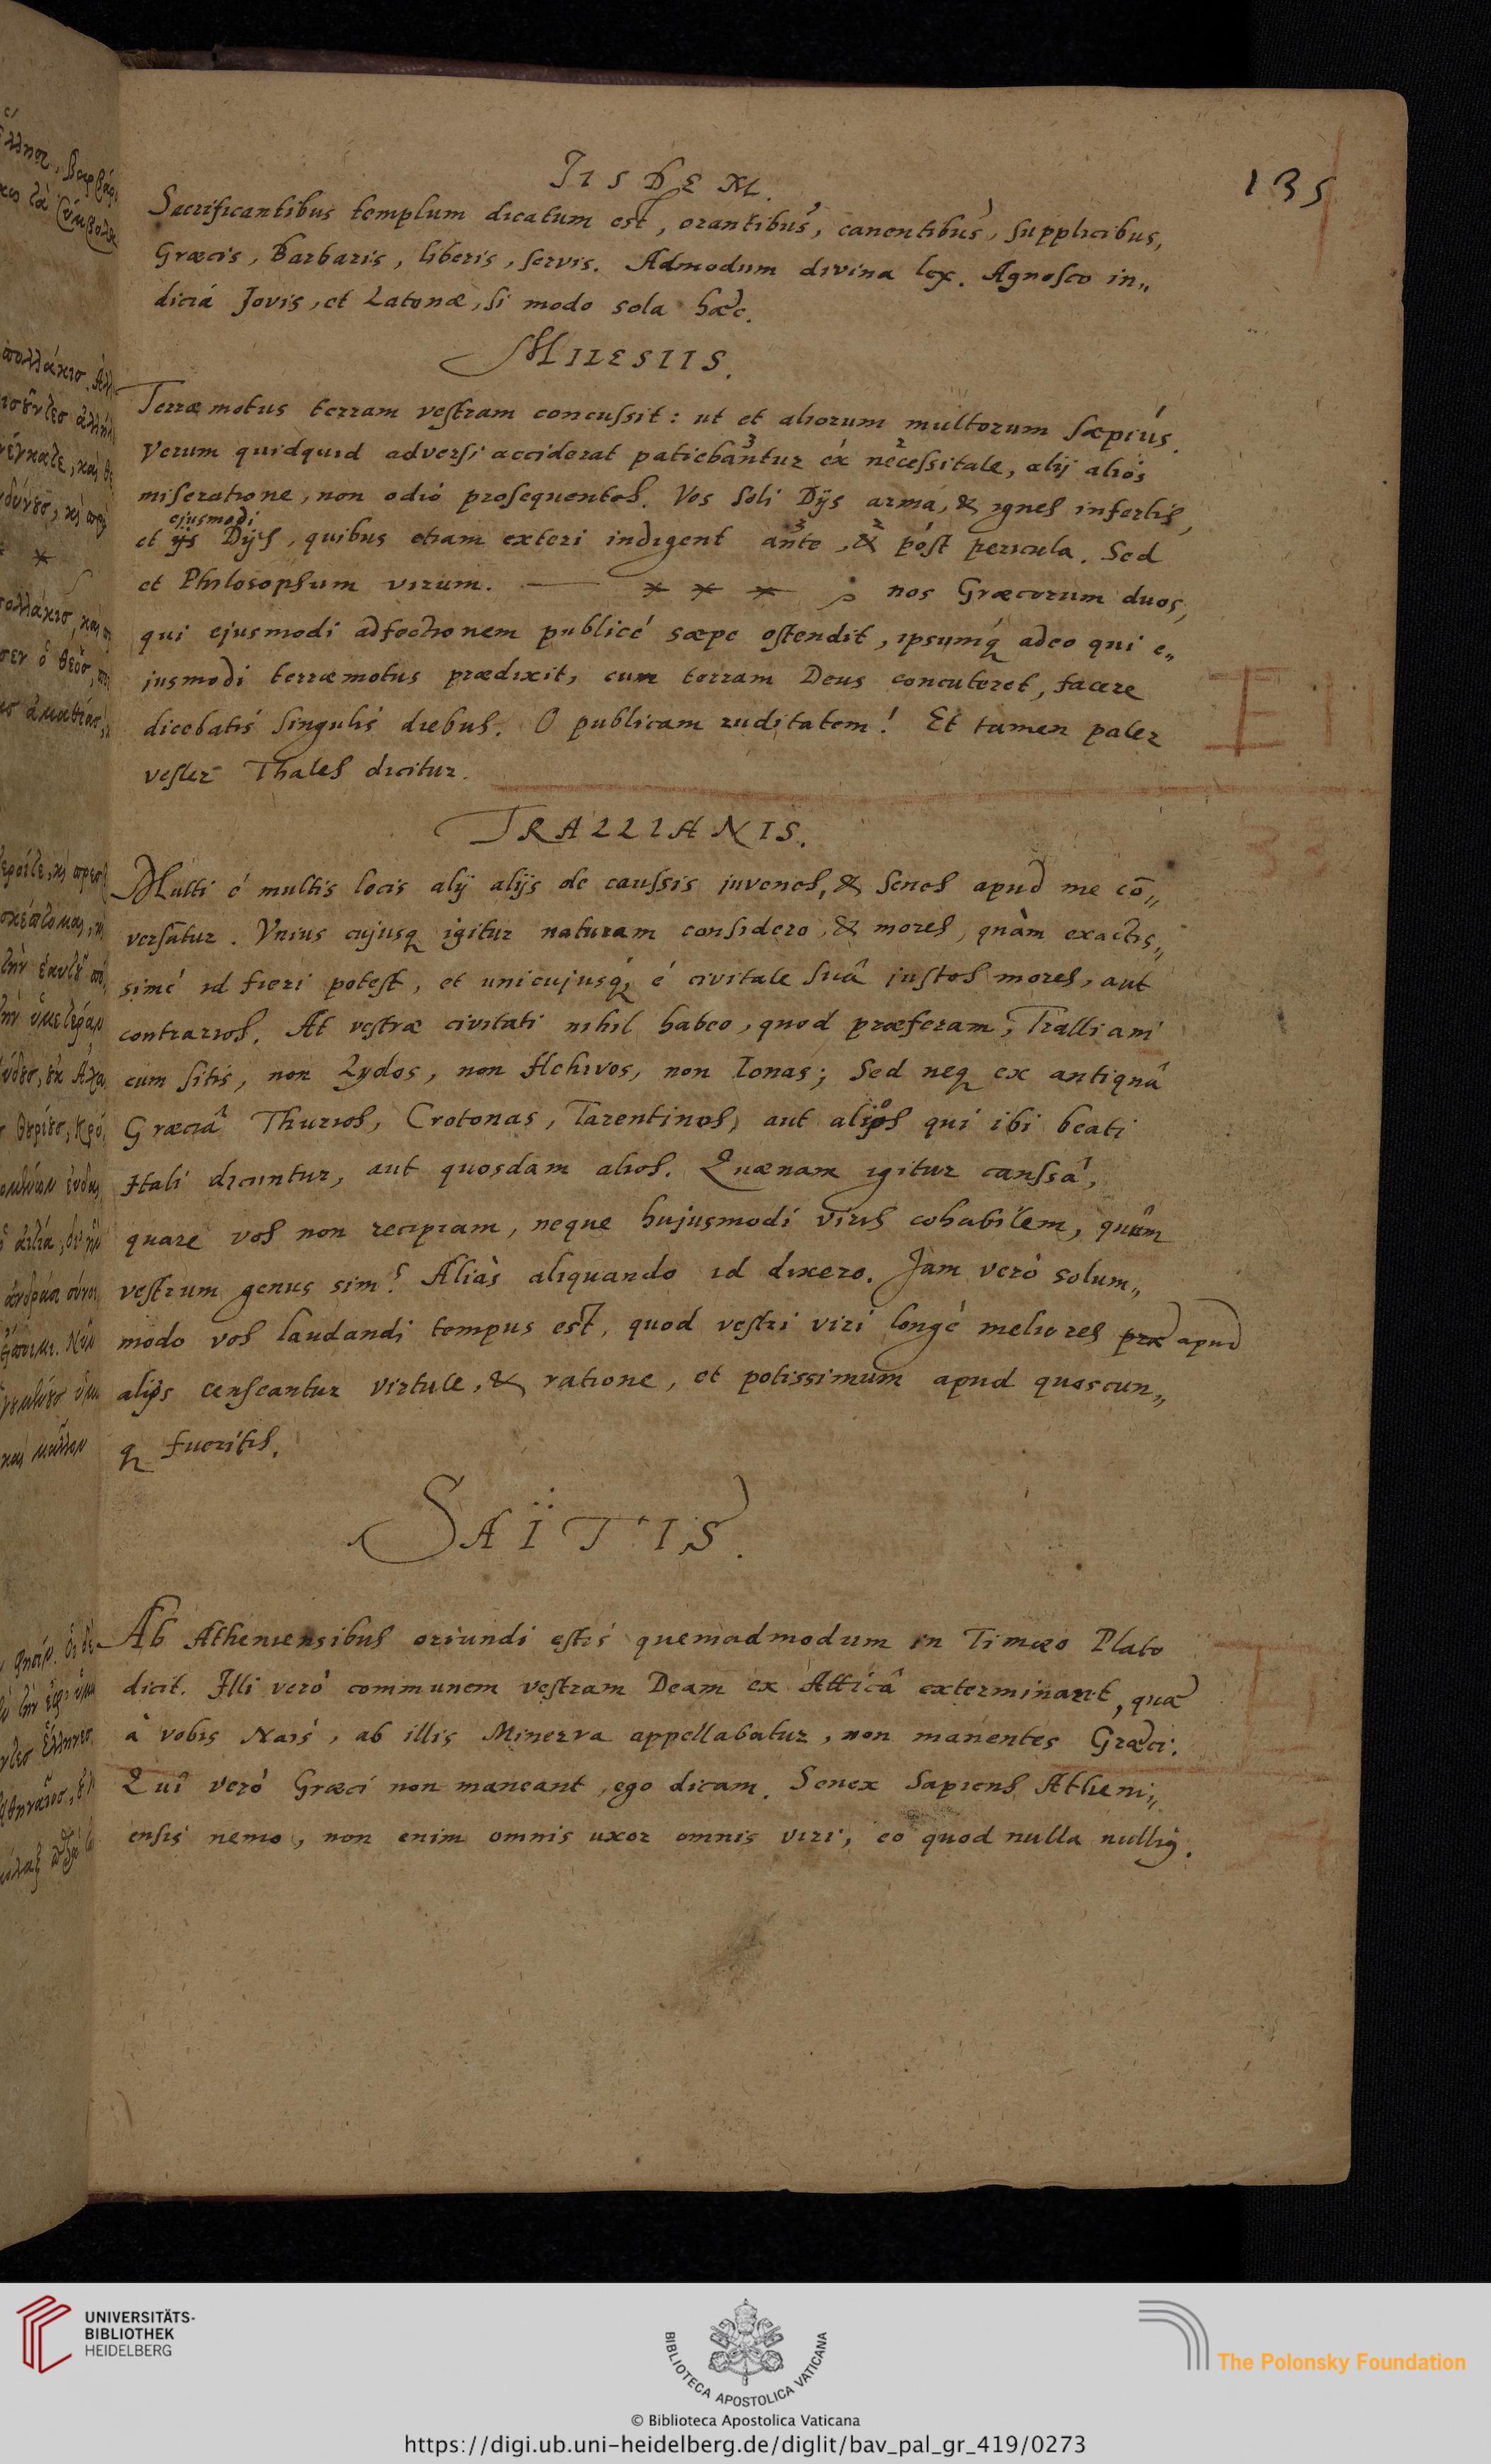 135
IISDEM.
Sacrificantibus templum dicatum est, orantibus, canentibus, supplicibus,
Græcis, Barbaris, liberis, servis. Admodum divina lex. Agnosco in„
diciá Jovis, et Latonæ, si modo sola hæc.
MILESIIS.
Terræ motus terram vestram concussit: ut et aliorum multorum sæpiús.
Verum quidquid adversi acciderat patiebantur ex necessitate, alij aliós
miseratione, non odió prosequentes. Vos soli Dijs arma, & ignes infertis,
ejusmodi
et ijs Dijs, quibus etiam exteri indigent ante, & póst pericula. Sed
et Philosophum virum. — * * * nos Græcorum duos,
qui ejusmodi adfectionem publicé sæpe ostendit, ipsumq́ adeo qui e„
jusmodi terræmotus prædixit, cum terram Deus concuteret, facere
dicebatis singulis diebus. O publicam ruditatem! Et tamen pater
vester Thales dicitur.
33
TRALLIANIS.
Multi é multis locis alij alijs de caussis juvenes, & senes apud me cō„
versātur. Vnius cujusq igitur naturam considero, & mores, quàm exactis„
simé id fieri potest, et unicujusq́, é civitate suâ justos mores, aut
contrarios. At vestræ civitati nihil habeo, quod præferam, Tralliani
cum sitis, non Lydos, non Achivos, non Ionas; Sed neq ex antiquâ
Græciâ Thurios, Crotonas, Tarentinos, aut alios qui ibi beati
Itali dicuntur, aut quosdam alios. Quænam igitur caussa,
quare vos non recipiam, neque hujusmodi viris cohabitem, quum
vestrum genus sim? Aliàs aliquando id dixero. Jam verò solum„
modo vos laudandi tempus est, quod vestri viri longé meliores præ apud
alios censeantur virtute, & ratione, et potissimum apud quoscun„
q fueritis.
SAÏTIS.
Ab Atheniensibus oriundi estis quemadmodum in Timæo Plato
dicit. Illi verò communem vestram Deam ex Atticâ exterminant, quæ
â vobis Nais, ab illis Minerva appellabatur, non manentes Græci.
Qui verò Græci non maneant, ego dicam. Senex sapiens Atheni„
ensis nemo, non enim omnis uxor omnis viri, eo quod nulla nullig.
UNIVERSITÄTS-
BIBLIOTHEK
HEIDELBERG
BIBLIOTECA APOSTOLICA VATICANA
The Polonsky Foundation
© Biblioteca Apostolica Vaticana
https://digi.ub.uni-heidelberg.de/diglit/bav_pal_gr_419/0273